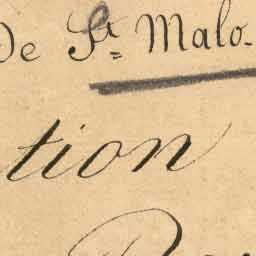 de St Malo.
tion